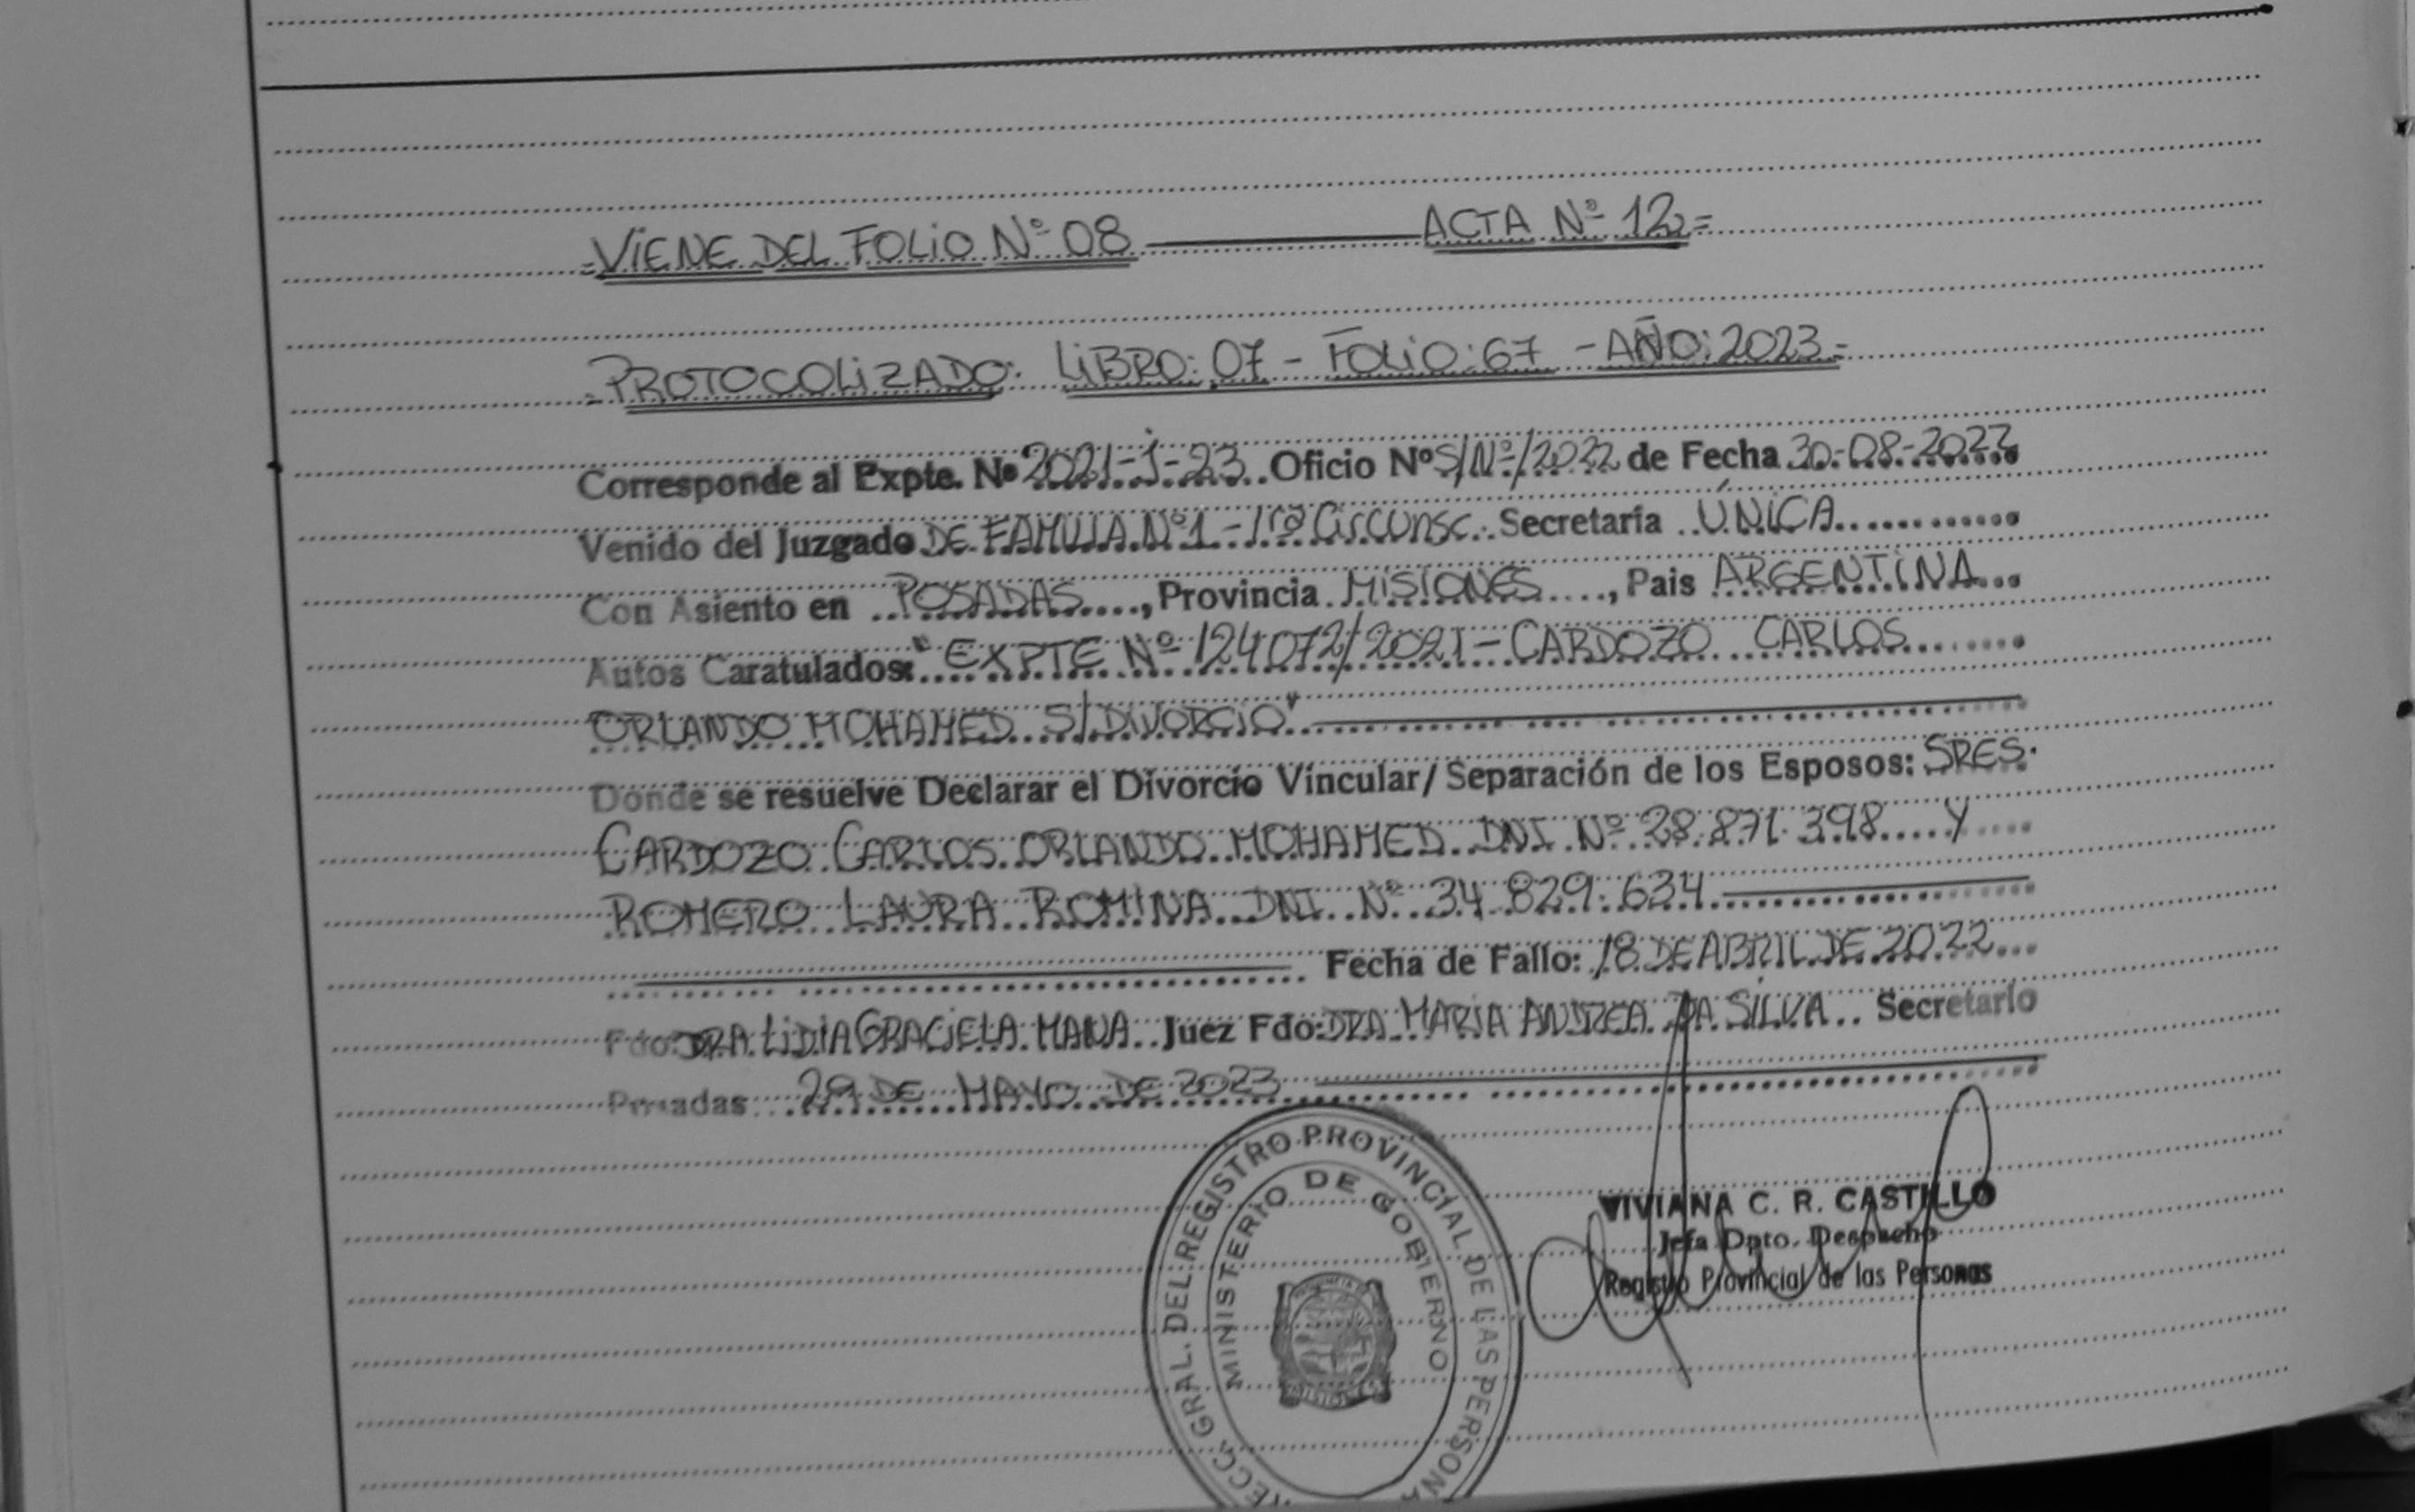 =VIENE DEL FOLIO Nº 08 ACTA Nº 12=
=PROTOCOLIZADO: LIBRO: 07 - FOLIO: 67 - AÑO: 2023=
Corresponde al Expte. Nº 2021-J-23 Oficio Nº S/Nº/2022 de Fecha 30-08-2022
Venido del Juzgado DE FAMILIA Nº1 - 1ra Circunsc. Secretaría ÚNICA
Con Asiento en POSADAS, Provincia MISIONES, Pais ARGENTINA
Autos Caratulados: "EXPTE Nº 124072/2021 - CARDOZO CARLOS
ORLANDO MOHAMED S/DIVORCIO"
Donde se resuelve Declarar el Divorcio Vincular/Separación de los Esposos: SRES.
CARDOZO CARLOS ORLANDO MOHAMED DNI Nº 28.871.398 Y
ROMERO LAURA ROMINA DNI Nº 34.829.634
Fecha de Fallo: 18 DE ABRIL DE 2022
Fdo: DRA LIDIA GRACIELA MANA Juez Fdo: DRA MARIA ANDREA DA SILVA Secretario
Posadas 29 DE MAYO DE 2023
GRAL. DEL REGISTRO PROVINCIAL DE LAS PERSON
MINISTERIO DE GOBIERNO
VIVIANA C. R. CASTILLO
Jefa Dpto. Despacho
Registro Provincial de las Personas